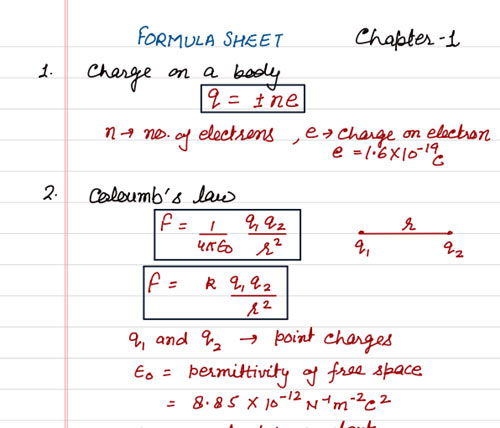 FORMULA SHEET Chapter-1
1. Charge on a body
q = ±ne
n → no. of electrons , e → charge on electron
e = 1.6 × 10⁻¹⁹ C
2. Coloumb's law
F = 1/4πε₀ q₁q₂/r²
r
q₁ q₂
F = k q₁q₂/r²
q₁ and q₂ → point charges
ε₀ = permittivity of free space
= 8.85 × 10⁻¹² N⁻¹m⁻²C²